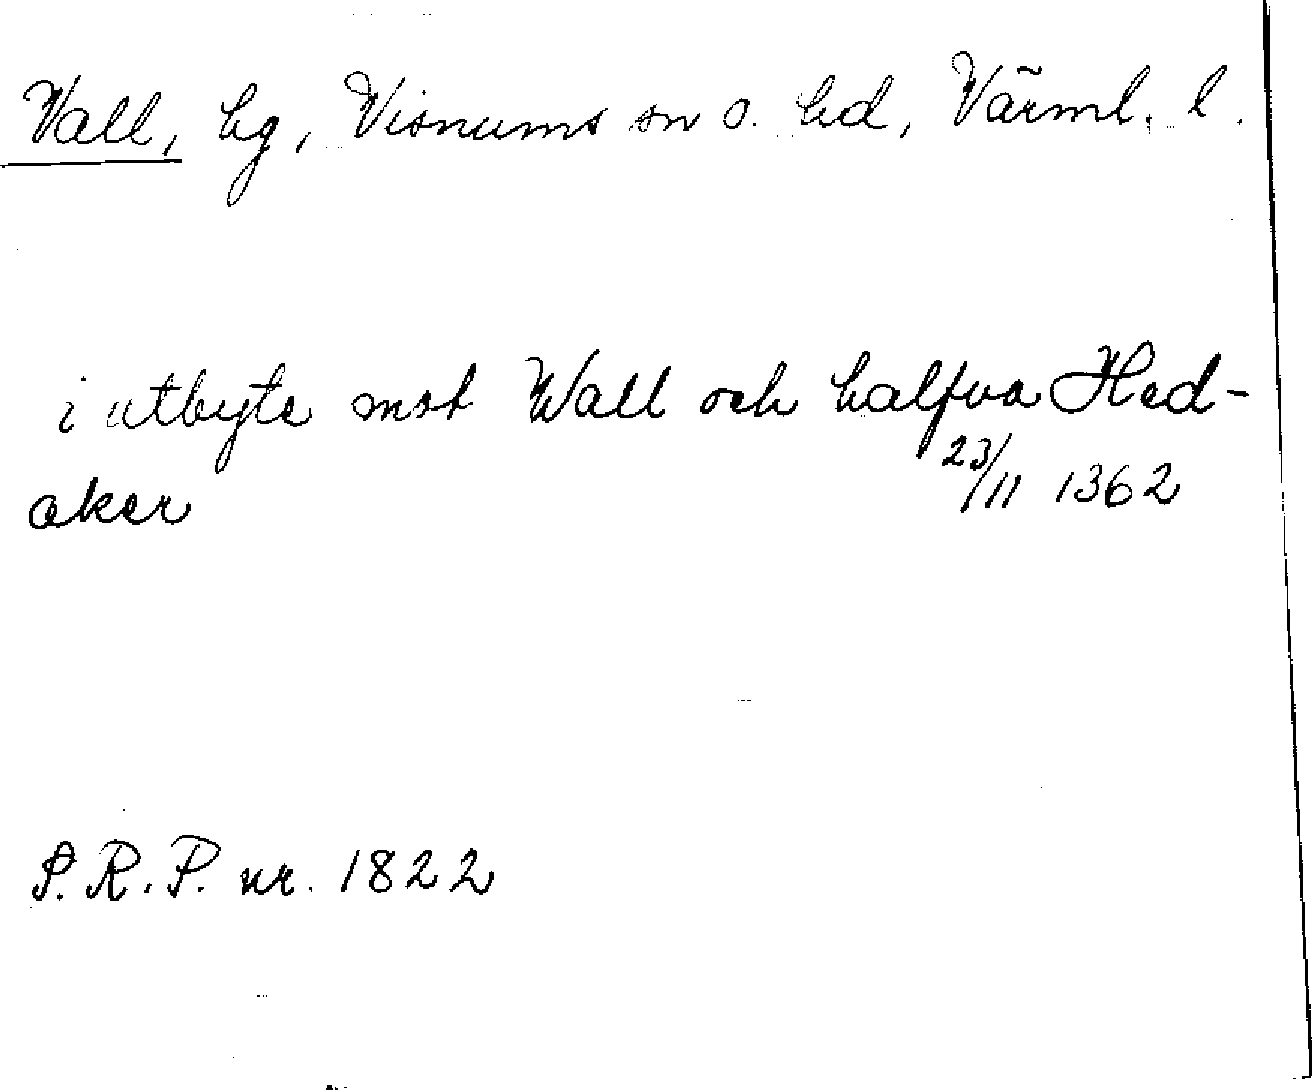 Vall, hg, Visnums sn o. hd, Värml. l.
i utbyte mot Wall och halfva Hed-
aker
23/11 1362
S.R.P. nr. 1822